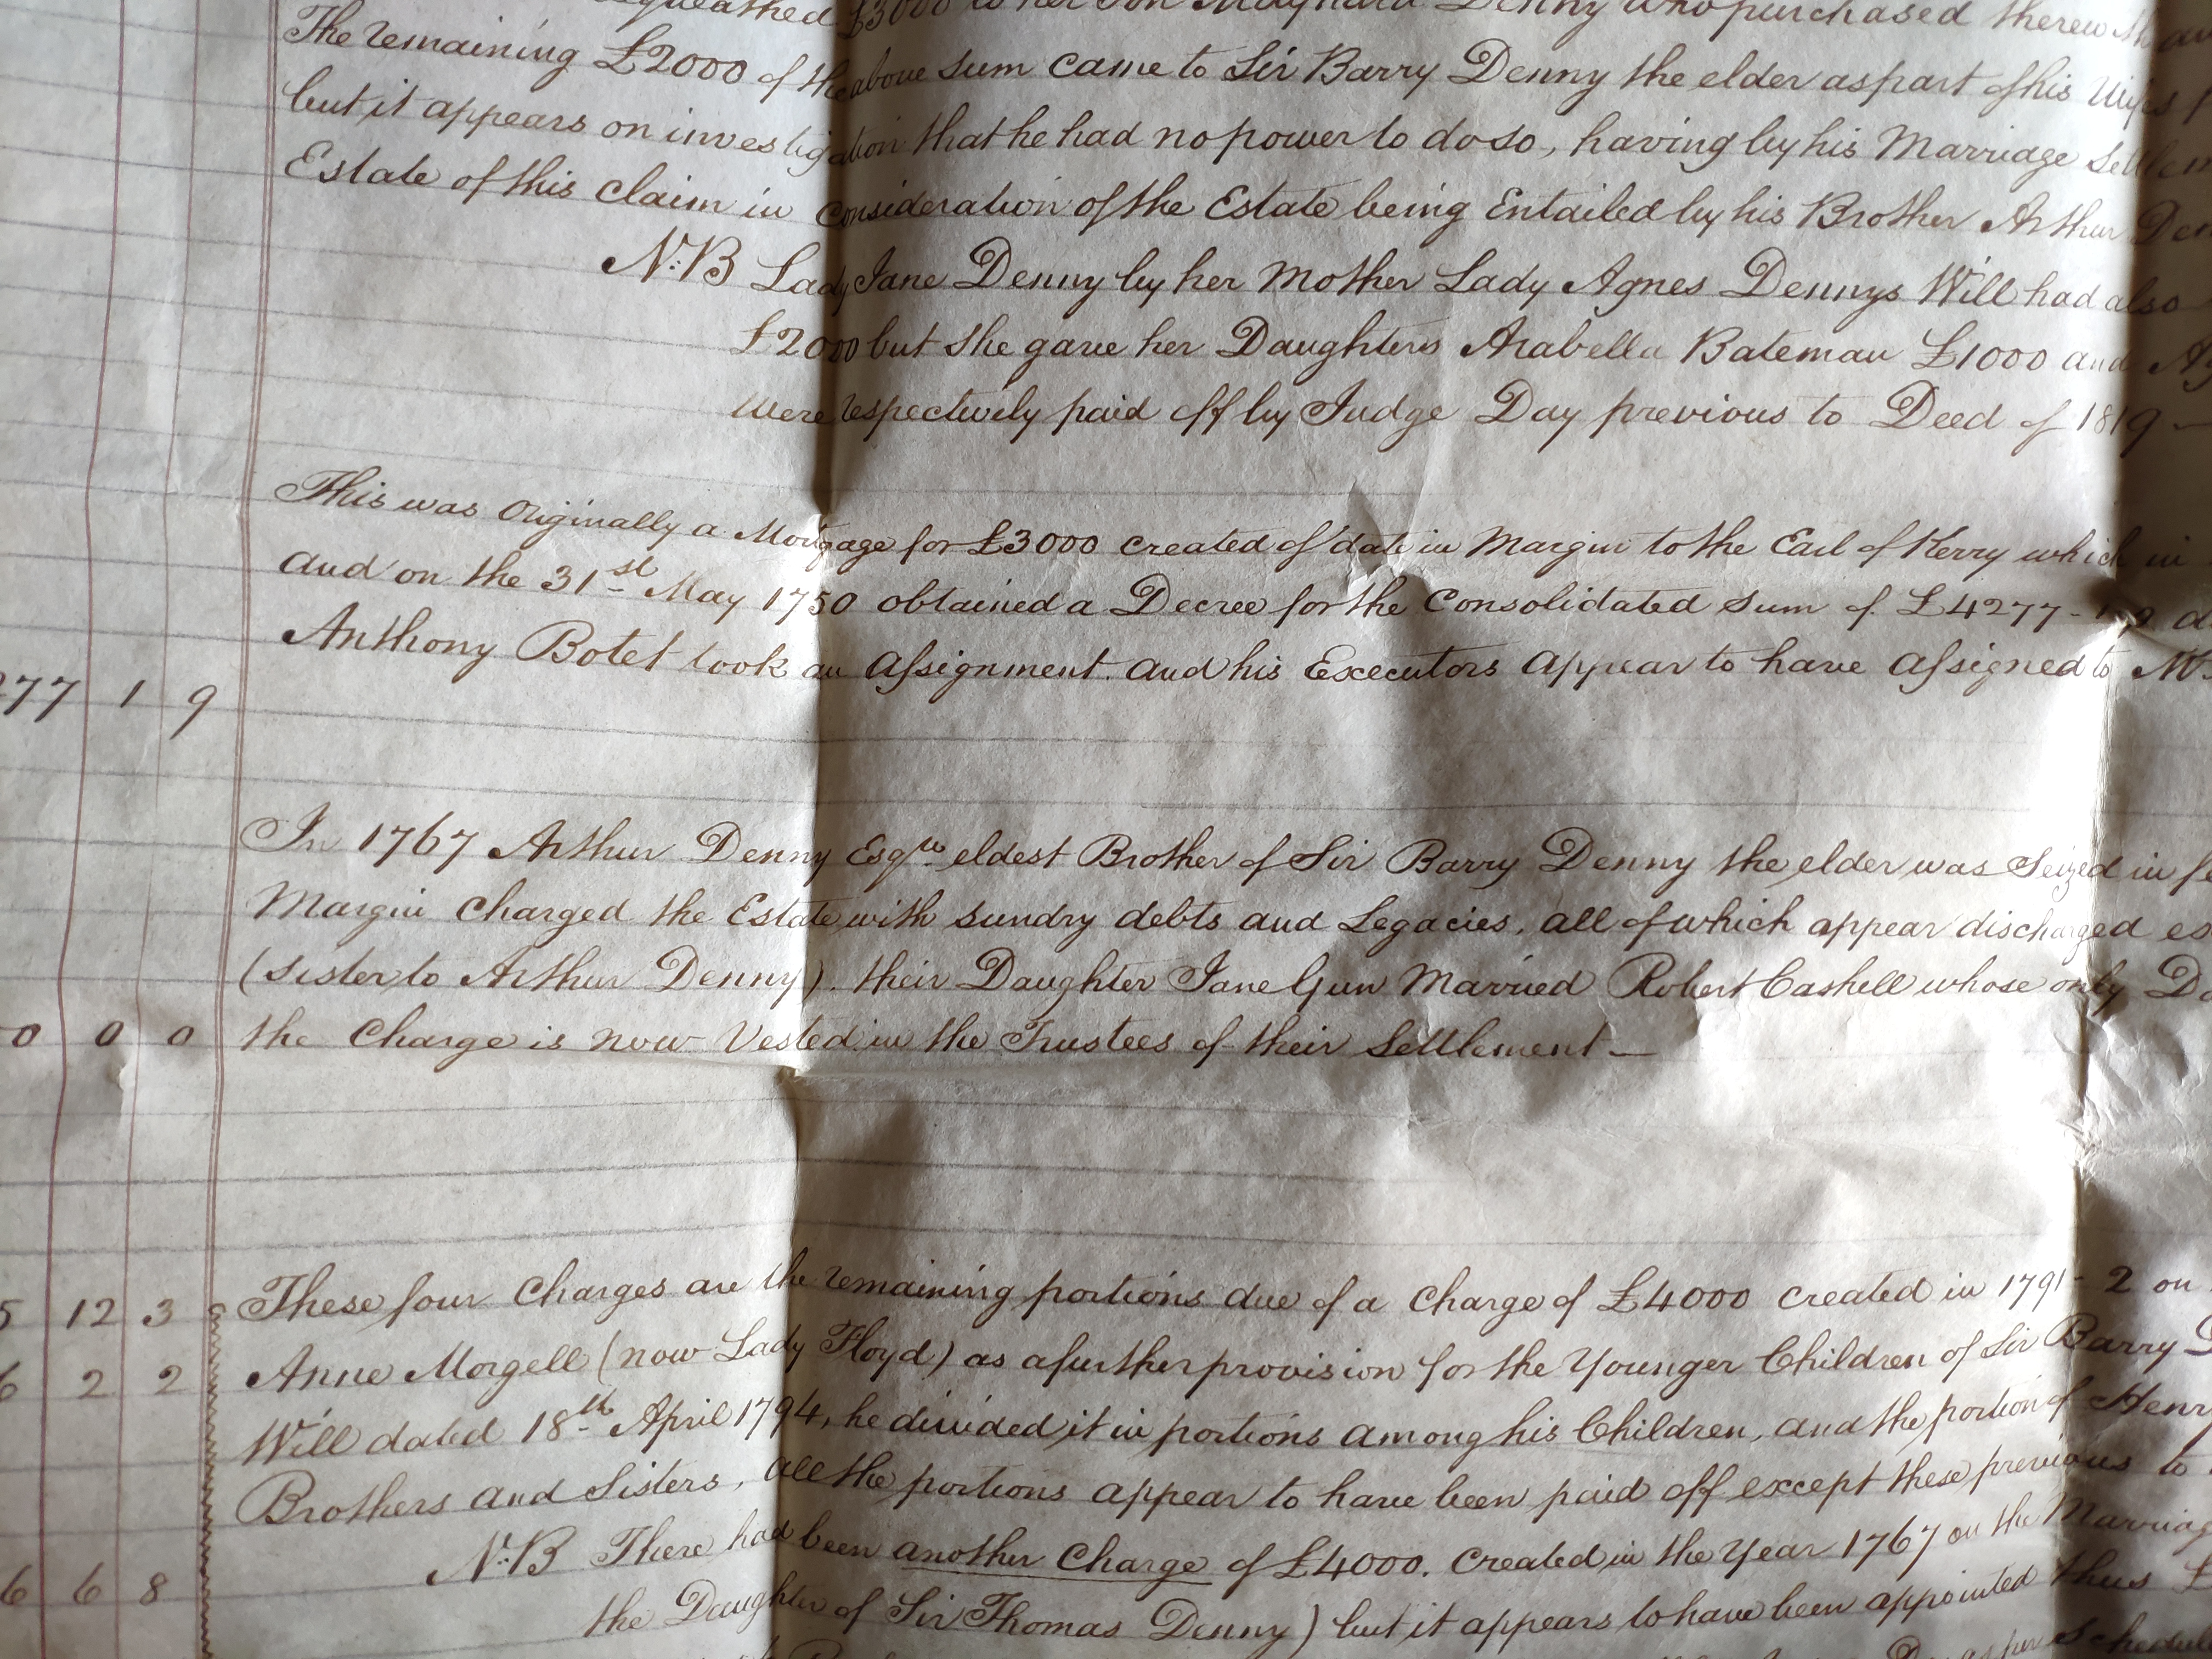 bequeathed £3000 to her Son Maynard Denny who purchased therewith an
The remaining £2000 of the above Sum came to Sir Barry Denny the elder as part of his Wifes
but it appears on investigation that he had no power to do so, having by his Marriage
Estate of this Claim in Consideration of the Estate being Entailed by his Brother Arthur
N:B Lady Jane Denny by her Mother Lady Agnes Dennys Will had also
£2000 but she gave her Daughters Arabella Bateman £1000 and
were respectively paid off by Judge Day previous to Deed of 1819 —
This was Originally a Mortgage for £3000 created of date in Margin to the Earl of Kerry which in
and on the 31st May 1750 obtained a Decree for the Consolidated Sum of £4277-1-9
Anthony Botet took an Assignment. and his Executors appear to have Assigned to
277 1 9
In 1767 Arthur Denny Esqre eldest Brother of Sir Barry Denny the elder was Seized in
Margin Charged the Estate with sundry debts and Legacies, all of which appear discharged
(Sister to Arthur Denny). their Daughter Jane Gun Married Robert Cashell whose only
0 0 0 the Charge is now Vested in the Trustees of their Settlement —
5 12 3 These four Charges are the remaining portions due of a Charge of £4000 created in 1791-2 on
6 2 2 Anne Morgell (now Lady Floyd) as a further provision for the Younger Children of Sir Barry
Will dated 18th April 1794, he divided it in portions among his Children, and the portion of Henry
Brothers and Sisters, all the portions appear to have been paid off except these previous to
N:B There had been another Charge of £4000. Created in the Year 1767 on the Marriage
6 6 8
the Daughter of Sir Thomas Denny) but it appears to have been appointed thus £